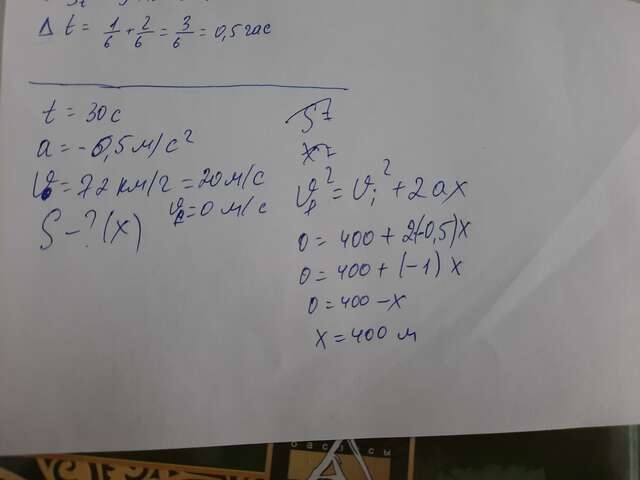 Δ t = 1/6 + 2/6 = 3/6 = 0,5 час
t = 30 с
a = -0,5 м/с²
V₀ = 72 км/г = 20 м/с
V_f = 0 м/с
S - ? (x)
S =
x =
V_f² = V_i² + 2ax
0 = 400 + 2(-0,5)x
0 = 400 + (-1) x
0 = 400 - x
x = 400 м